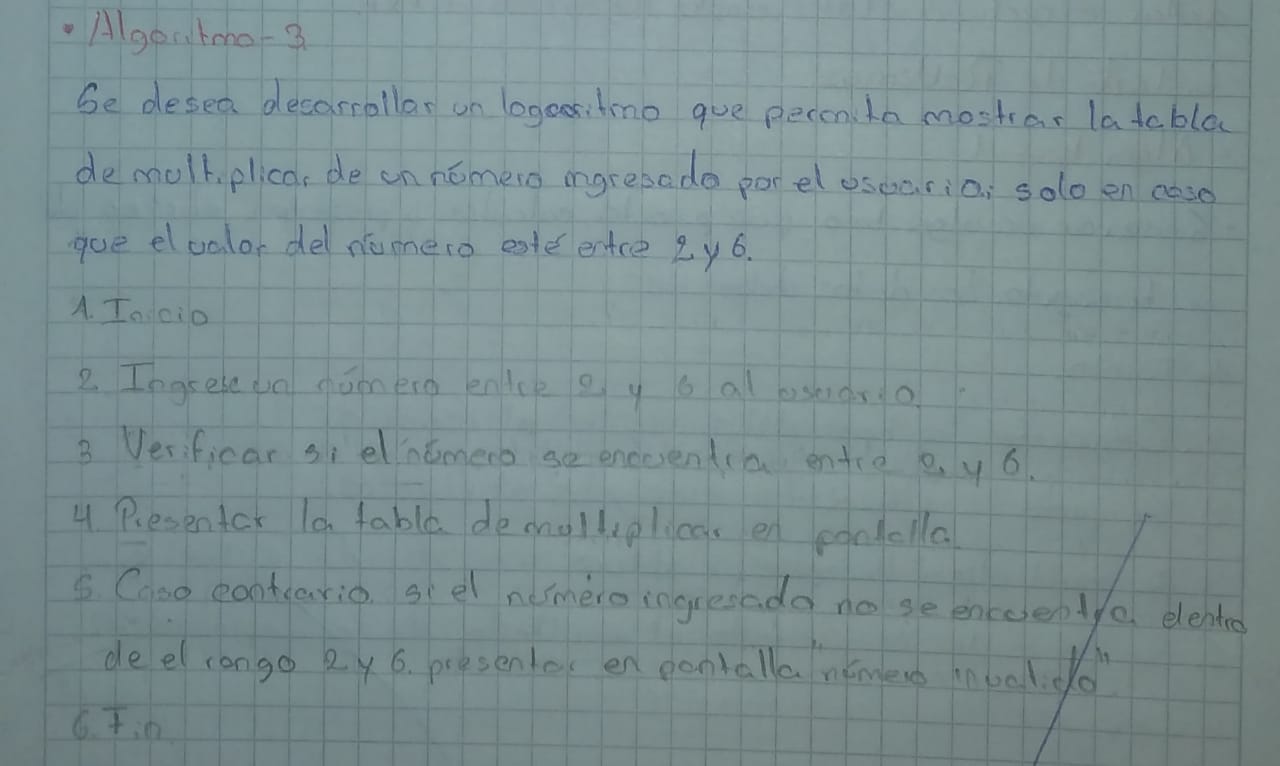 • Algoritmo-3
Se desea desarrollar un logoaritmo que permita mostrar la tabla
de multiplicar de un número ingresado por el usuario, solo en caso
que el valor del número esté entre 2 y 6.
1. Inicio
2. Ingrese un número entre 2 y 6 al usuario.
3 Verificar si el número se encuentra entre 2 y 6.
4. Presentar la tabla de multiplicar en pantalla
5. Caso contrario si el número ingresado no se encuentra dentro
de el rango 2 y 6. presentar en pantalla "número invalido"
6. Fin